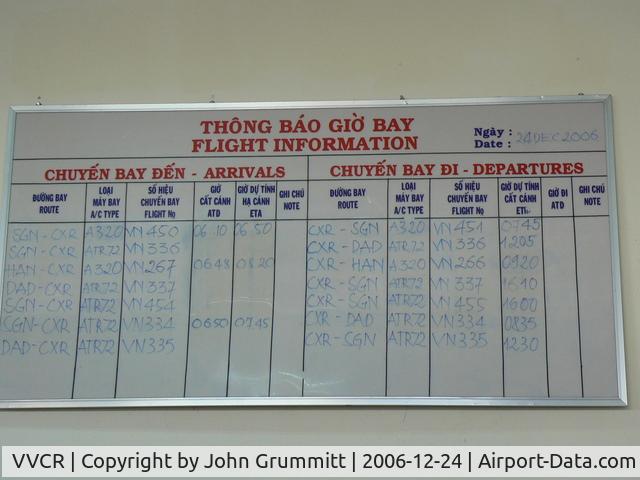 THÔNG BÁO GIỜ BAY
FLIGHT INFORMATION
Ngày :
Date : 24 DEC 2006
CHUYẾN BAY ĐẾN - ARRIVALS
CHUYẾN BAY ĐI - DEPARTURES
ĐƯỜNG BAY ROUTE LOẠI MÁY BAY A/C TYPE SỐ HIỆU CHUYẾN BAY FLIGHT No GIỜ CẤT CÁNH ATD GIỜ DỰ TÍNH HẠ CÁNH ETA GHI CHÚ NOTE
ĐƯỜNG BAY ROUTE LOẠI MÁY BAY A/C TYPE SỐ HIỆU CHUYẾN BAY FLIGHT No GIỜ DỰ TÍNH CẤT CÁNH GIỜ ĐI ATD GHI CHÚ NOTE
SGN-CXR A320 VN450 06.10 06.50
SGN-CXR ATR72 VN336
HAN-CXR A320 VN267 0648 08.20
DAD-CXR ATR72 VN337
SGN-CXR ATR72 VN454
SGN-CXR ATR72 VN334 0650 07.45
DAD-CXR ATR72 VN335
CXR-SGN A320 VN451 0745
CXR-DAD ATR72 VN336 1205
CXR-HAN A320 VN266 0920
CXR-SGN ATR72 VN337 1610
CXR-SGN ATR72 VN455 1600
CXR-DAD ATR72 VN334 0835
CXR-SGN ATR72 VN335 1230
VVCR | Copyright by John Grummitt | 2006-12-24 | Airport-Data.com